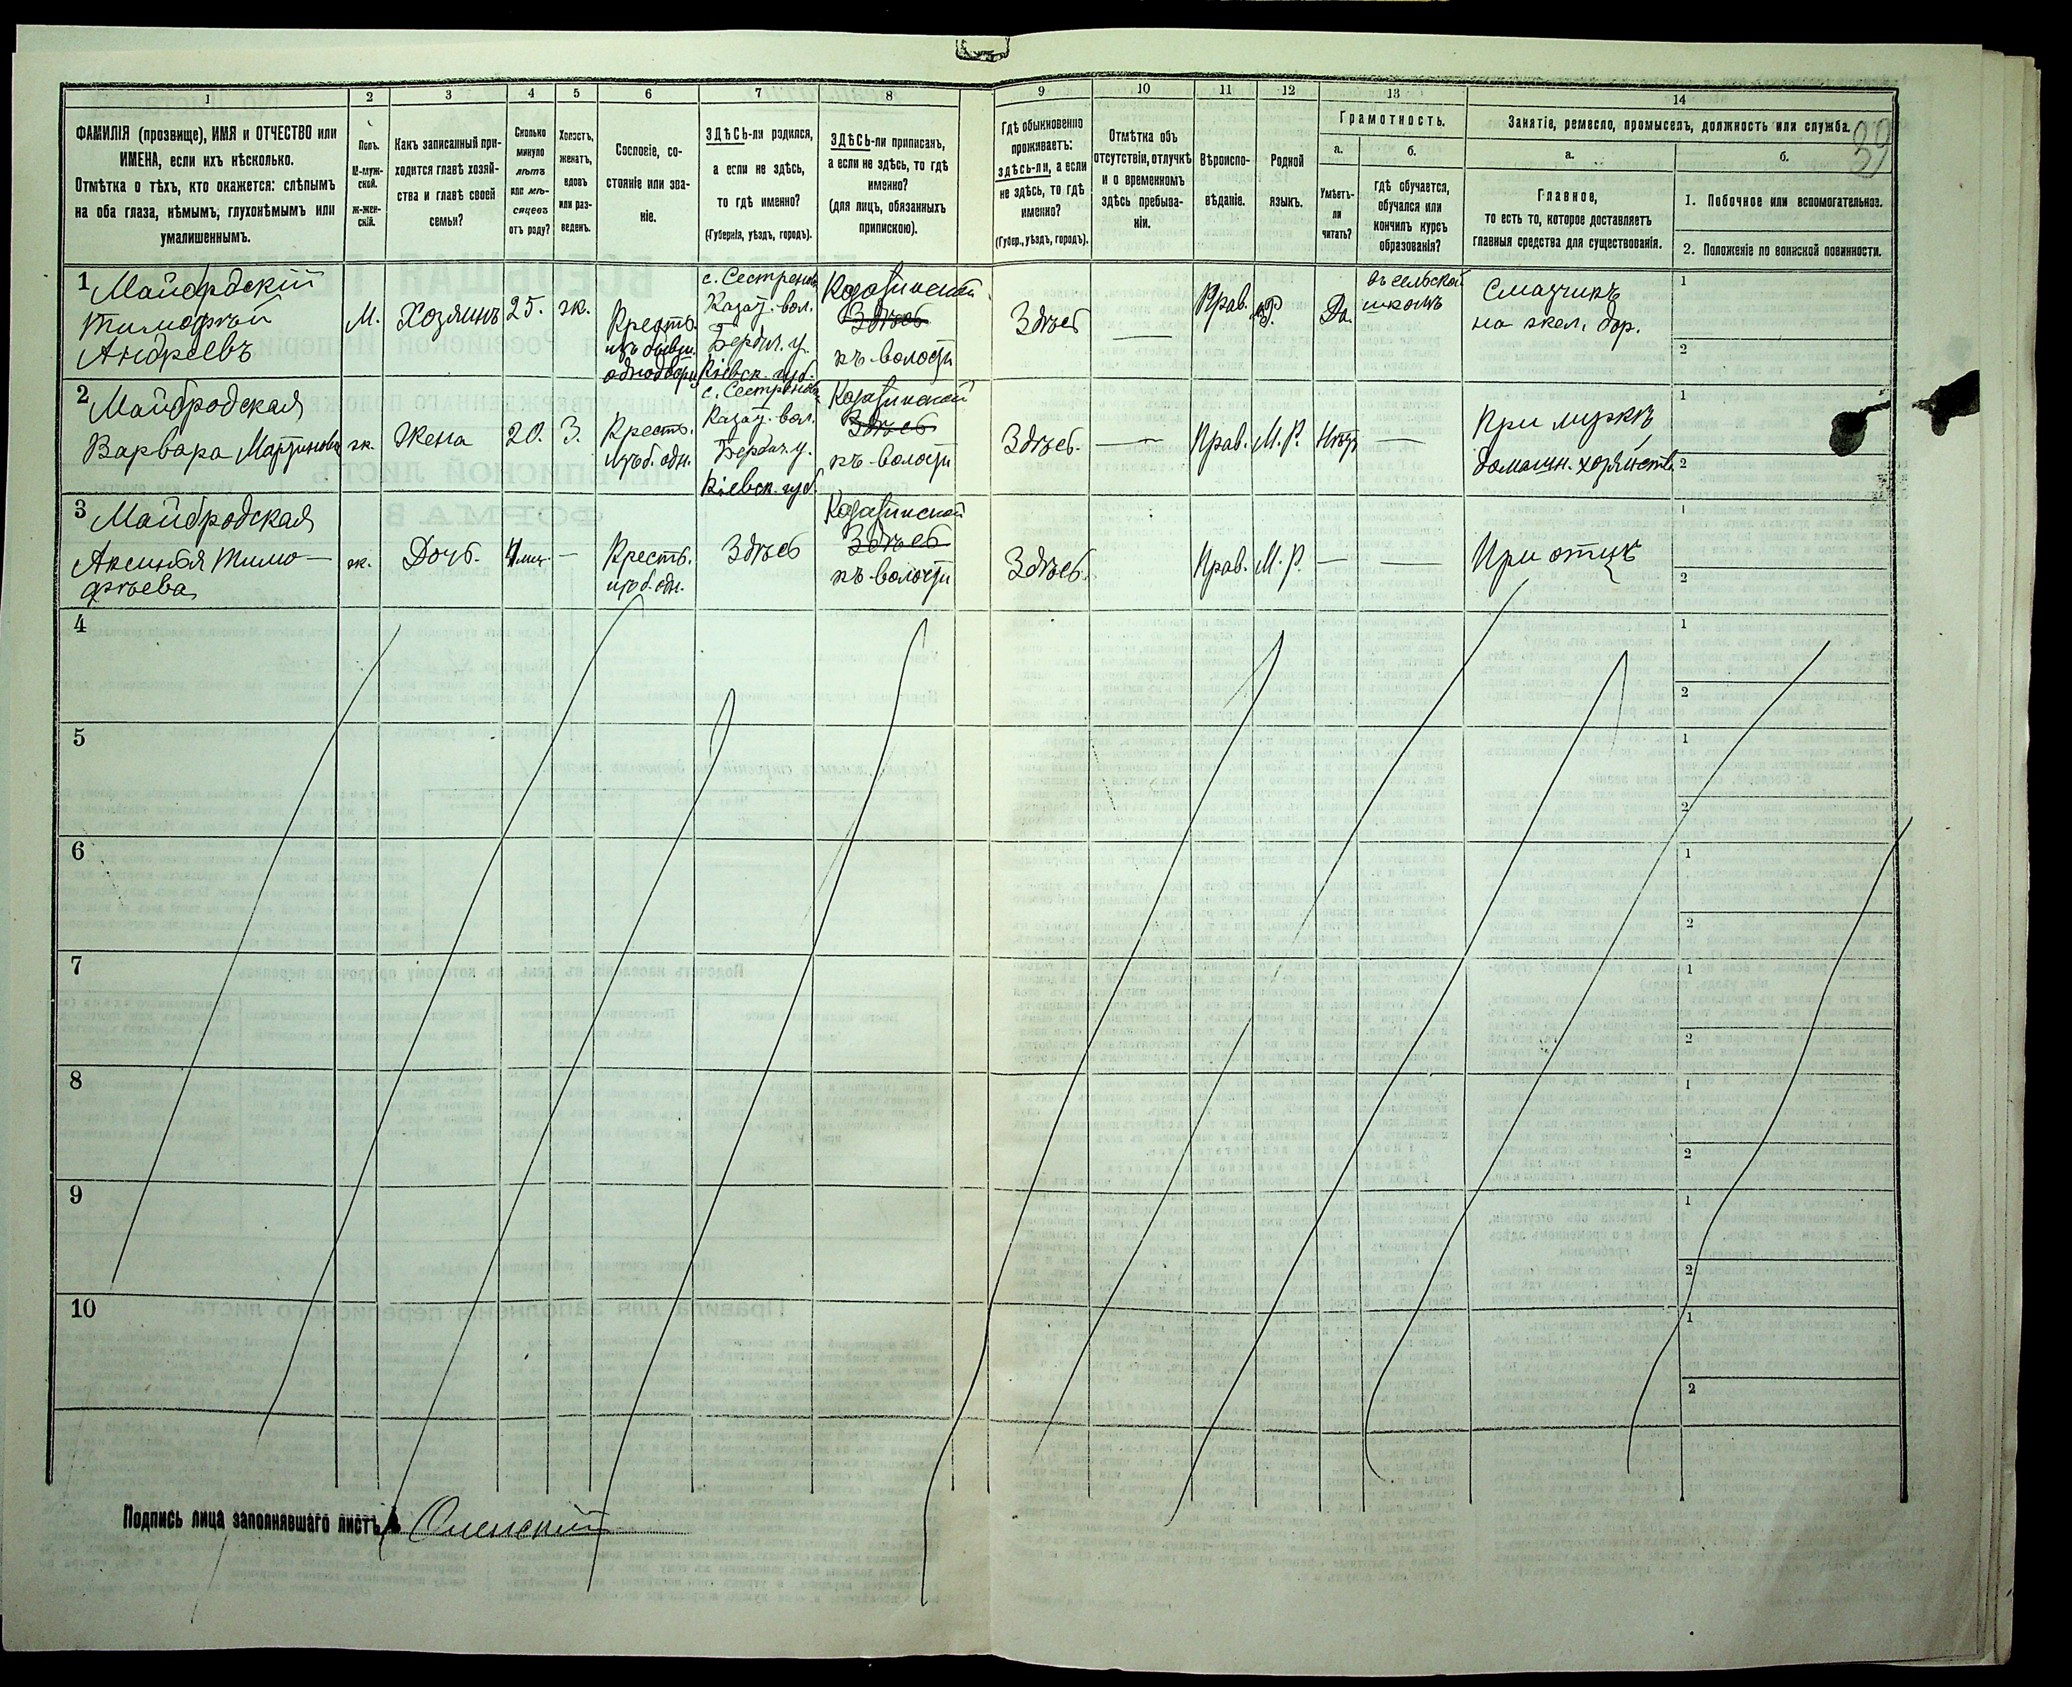 1 2 3 4 5 6 7 8 9 10 11 12 13 14
39
ФАМИЛІЯ (прозвище), ИМЯ и ОТЧЕСТВО или
ИМЕНА, если ихъ нѣсколько.
Отмѣтка о тѣхъ, кто окажется: слѣпымъ
на оба глаза, нѣмымъ, глухонѣмымъ или
умалишеннымъ.
Полъ.
М-муж-
ской.
Ж-жен-
скій.
Какъ записанный при-
ходится главѣ хозяй-
ства и главѣ своей
семьи?
Сколько
минуло
лѣтъ
или мѣ-
сяцевъ
отъ роду?
Холостъ,
женатъ,
вдовъ
или раз-
веденъ.
Сословіе, со-
стояніе или зва-
ніе.
ЗДѢСЬ-ли родился,
а если не здѣсь,
то гдѣ именно?
(Губернія, уѣздъ, городъ).
ЗДѢСЬ-ли приписанъ,
а если не здѣсь, то гдѣ
именно?
(для лицъ, обязанныхъ
припискою).
Гдѣ обыкновенно
проживаетъ:
здѣсь-ли, а если
не здѣсь, то гдѣ
именно?
(Губер., уѣздъ, городъ).
Отмѣтка объ
отсутствіи, отлучкѣ
и о временномъ
здѣсь пребыва-
ніи.
Вѣроиспо-
вѣданіе.
Родной
языкъ.
Грамотность.
а.
Умѣетъ-
ли
читать?
б.
гдѣ обучается,
обучался или
кончилъ курсъ
образованія?
Занятіе, ремесло, промыселъ, должность или служба.
а.
Главное,
то есть то, которое доставляетъ
главныя средства для существованія.
б.
1. Побочное или вспомогательное.
2. Положеніе по воинской повинности.
1 Майбродскій
Тимофѣй
Андреевъ
М.
Хозяинъ
25.
ж.
Крестъ.
изъ бывш.
однодвор.
с. Сестренов.
Казат. вол.
Бердич. у.
Кіевск. губ.
Козатинской
Здѣсь
къ волости
Здѣсь
—
Прав.
М.Р.
Да.
въ сельской
школѣ
Смазчикъ
на жел. дор.
1
2
2 Майбродская
Варвара Мартинова
ж.
Жена
20.
З.
Крестъ.
изъ б. одн.
с. Сестренов.
Казат. вол.
Бердич. у.
Кіевск. губ.
Козатинской
Здѣсь
къ волости
Здѣсь.
—
Прав.
М. Р.
Нѣтъ
—
При мужѣ
домашн. хозяйств.
1
2
3 Майбродская
Аксинья Тимо-
фѣева
ж.
Дочь.
—
Крестъ.
изъ б. одн.
Здѣсь
Козатинской
Здѣсь
къ волости
Здѣсь.
Прав.
М. Р.
—
—
При отцѣ
1
2
4
1
2
5
1
2
6
1
2
7
1
2
8
1
2
9
1
2
10
1
2
Подпись лица заполнявшаго листъ